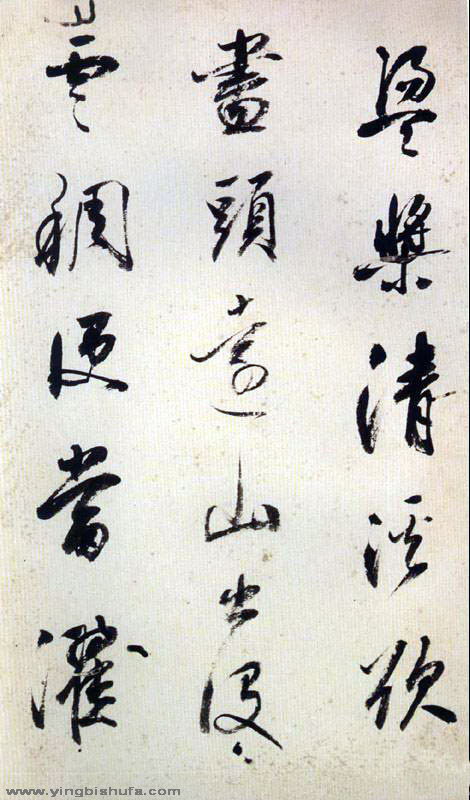 盪槳清溪欲
盡頭遠山出沒
雲稠便當濯
www.yingbishufa.com